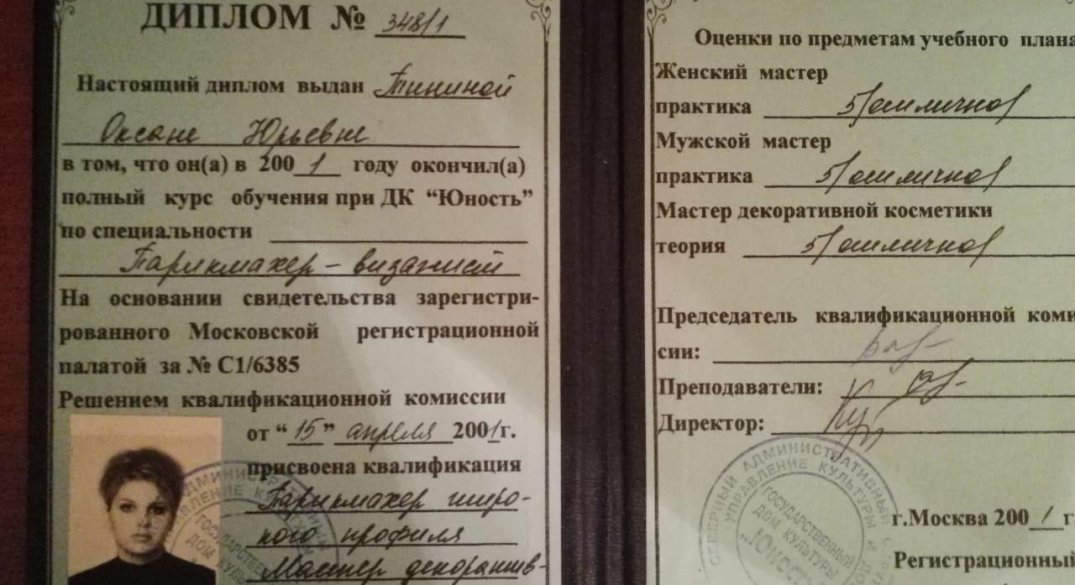 ДИПЛОМ № 348/1
Настоящий диплом выдан Тининой
Оксане Юрьевне
в том, что он(а) в 2001 году окончил(а)
полный курс обучения при ДК “Юность”
по специальности
Парикмахер-визажист
На основании свидетельства зарегистри-
рованного Московской регистрационной
палатой за № С1/6385
Решением квалификационной комиссии
от “15” апреля 2001г.
присвоена квалификация
Парикмахер широ-
кого профиля
Мастер декоратив-
Оценки по предметам учебного плана
Женский мастер
практика 5/отлично/
Мужской мастер
практика 5/отлично/
Мастер декоративной косметики
теория 5/отлично/
Председатель квалификационной коми
сии:
Преподаватели:
Директор:
СЕВЕРНЫЙ АДМИНИСТРАТИВНЫЙ
УПРАВЛЕНИЕ КУЛЬТУРЫ
ГОСУДАРСТВЕННЫЙ
ДОМ КУЛЬТУРЫ
г.Москва 2001 г
Регистрационный